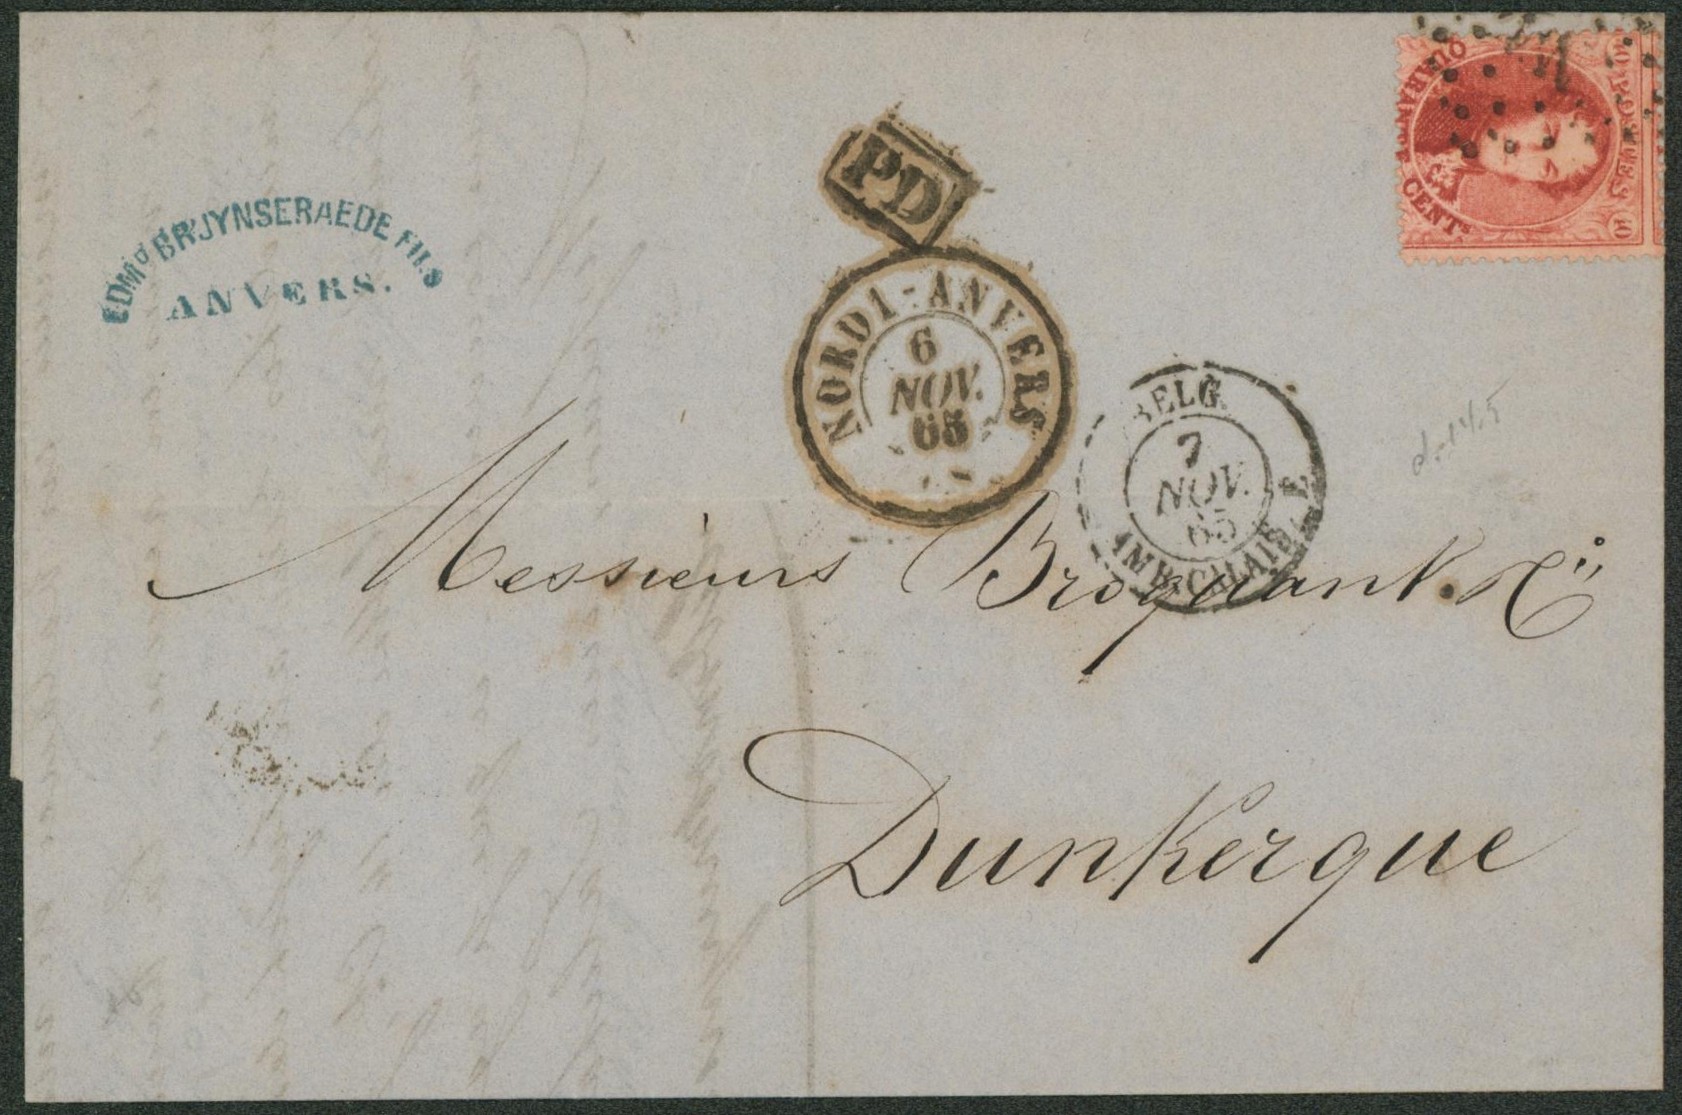 EDM.D BRUYNSERAEDE FILS
ANVERS.
PD
NORD 1 - ANVERS
6
NOV.
65
BELG.
7
NOV.
65
AMB. CALAIS
QUARANTE
CENTS
POSTES
d. 14,5
Messieurs Broquant & Cie
Dunkerque